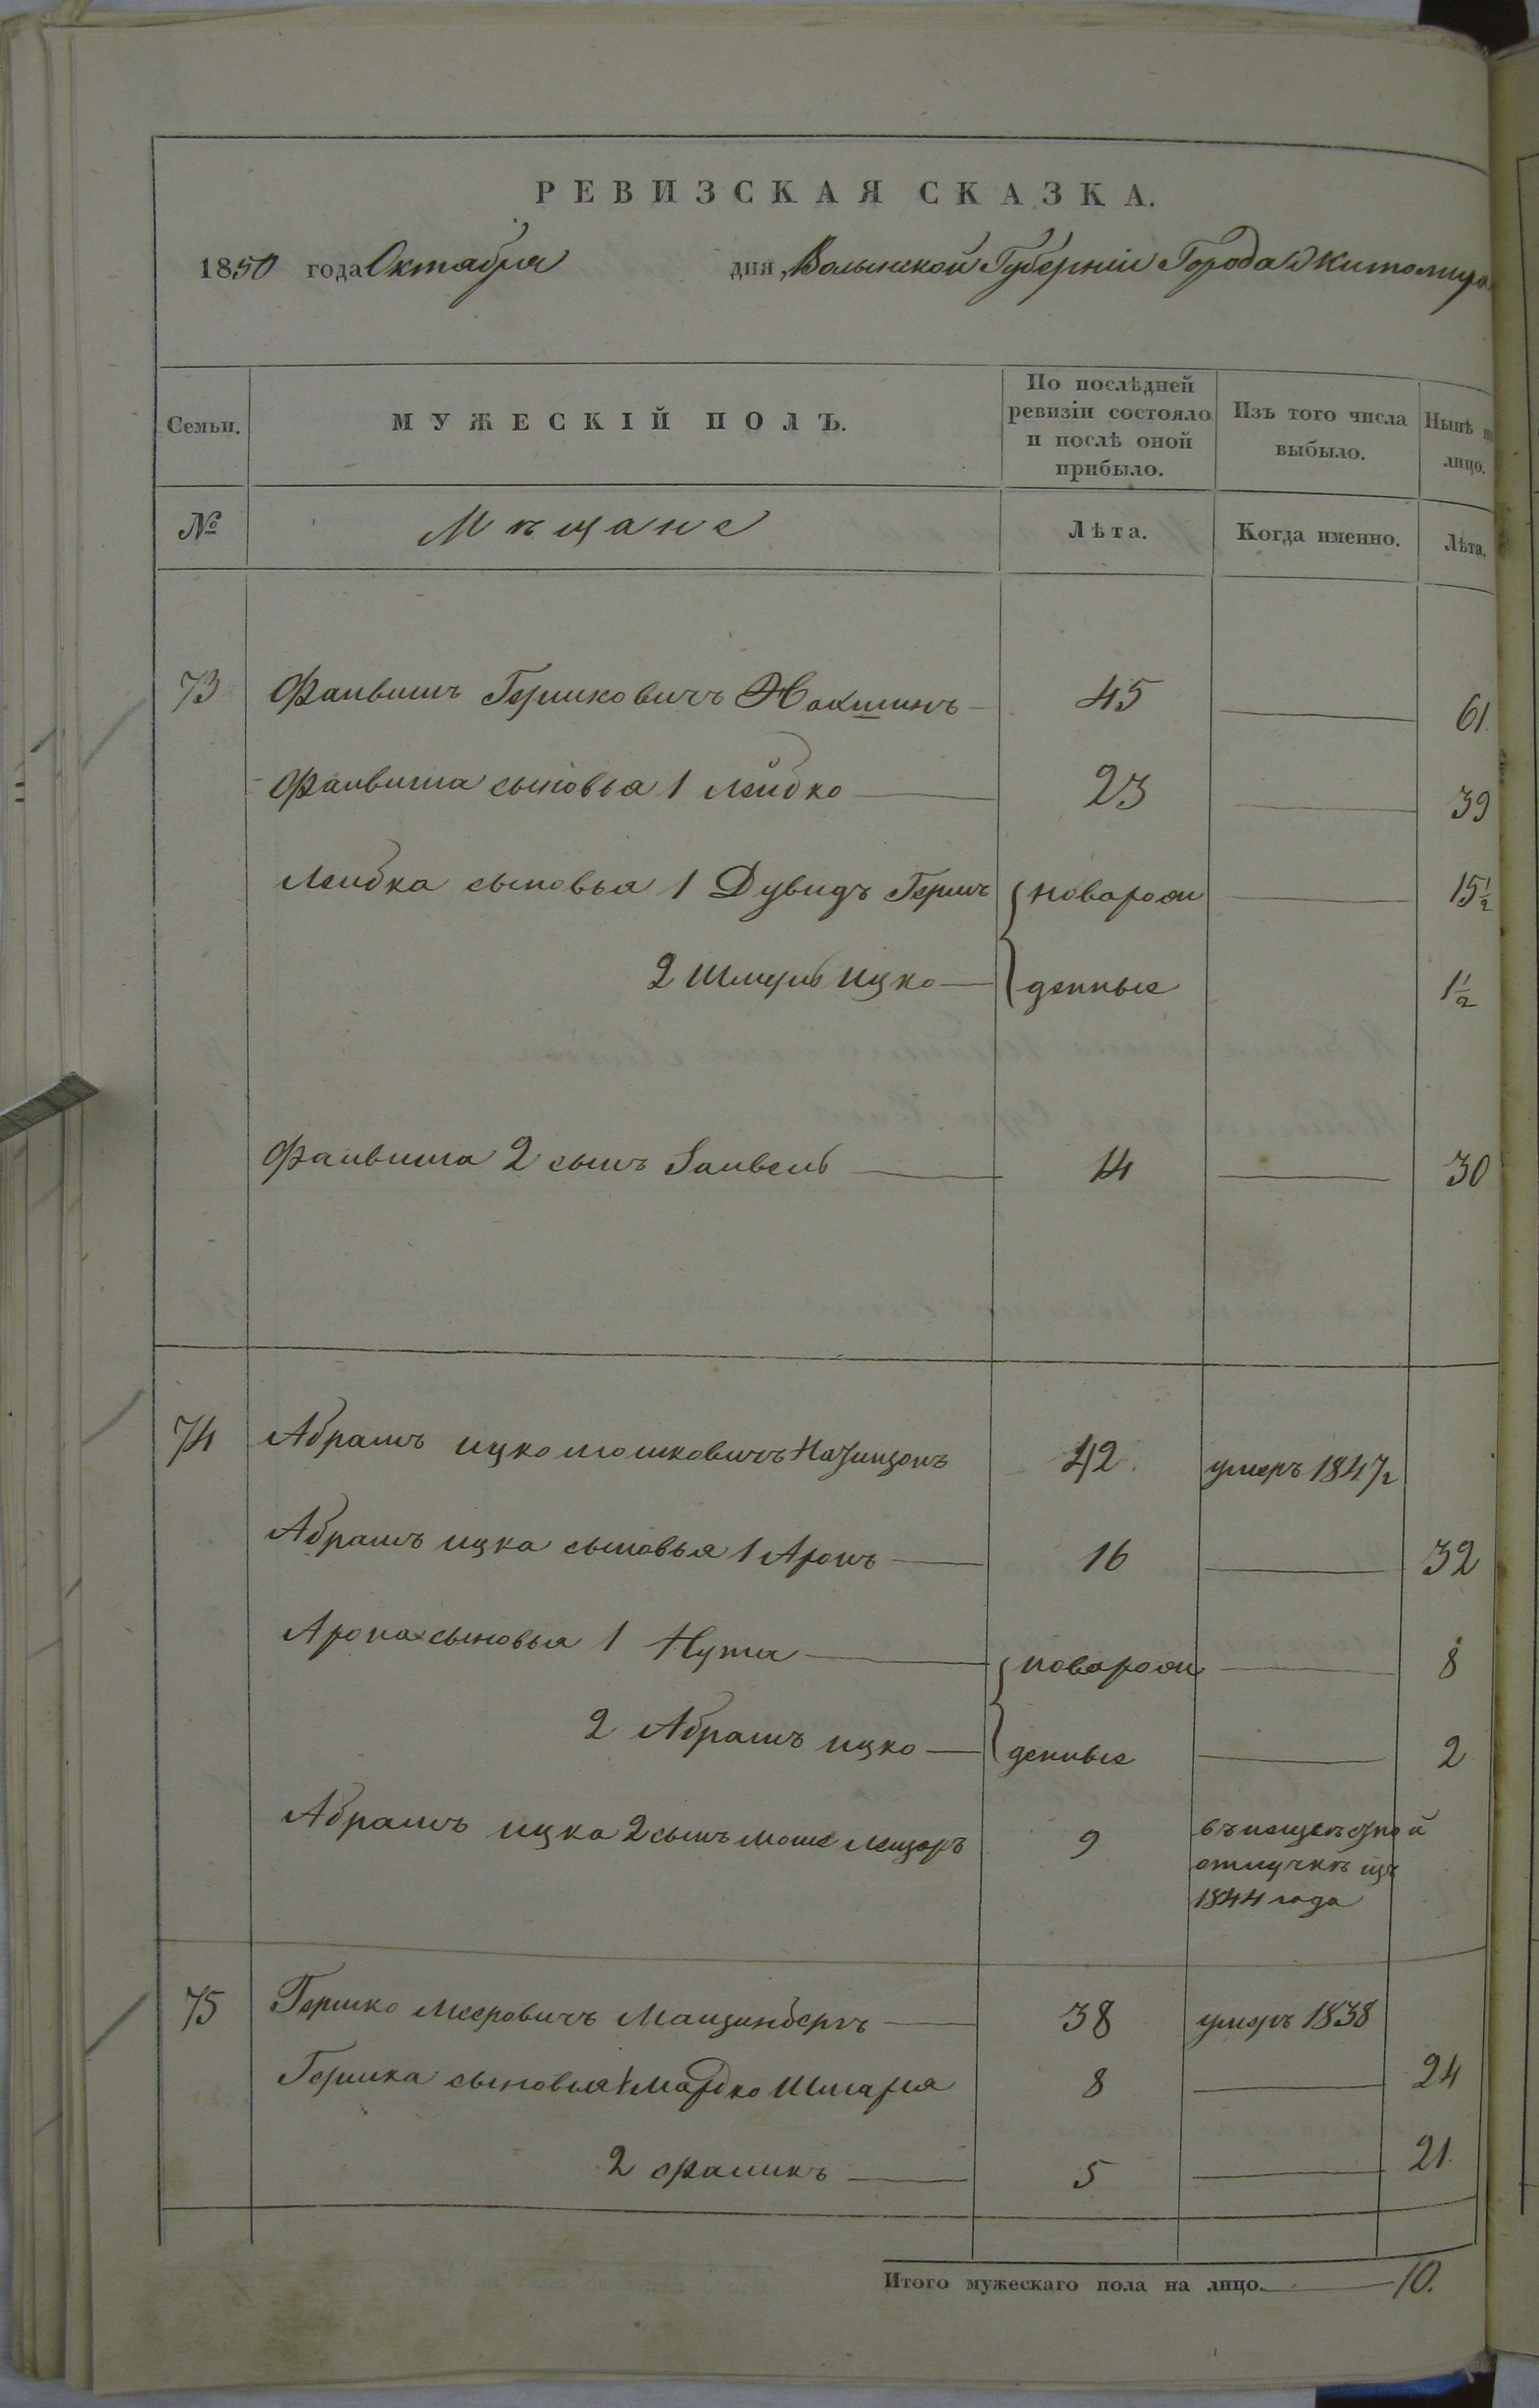 РЕВИЗСКАЯ СКАЗКА.
1850 года Октября дня, Волынской Губерніи Города Житомира
Семьи. МУЖЕСКІЙ ПОЛЪ. По послѣдней ревизіи состояло и послѣ оной прибыло. Изъ того числа выбыло. Нынѣ на лицо.
№ Мѣщане Лѣта. Когда именно. Лѣта.
73 Фаивишъ Гершковичъ 45 61.
Фаивиша сыновья 1 Лейбко 23 39
Лейбка сыновья 1 Дувидъ Гершъ новорож 15½
2 Шмуль Ицко денные 1½
Фаивиша 2 сынъ Заивель 14 30
74 Абрамъ Ицко Мошковичъ 42. умеръ 1847 г
Абрамъ Ицка сыновья 1 Аронъ 16 32
Арона сыновья 1 Нута новорож 8
2 Абрамъ Ицко денные 2
Абрамъ Ицка 2 сынъ Моше Лейзоръ 9 въ
отлучкѣ изъ
1844 года
75 Гершко Мееровичъ 38 умеръ 1838
Гершка сыновья 1 Мордко Шмарья 8 24
2 Фаликъ 5 21.
Итого мужескаго пола на лицо. 10.